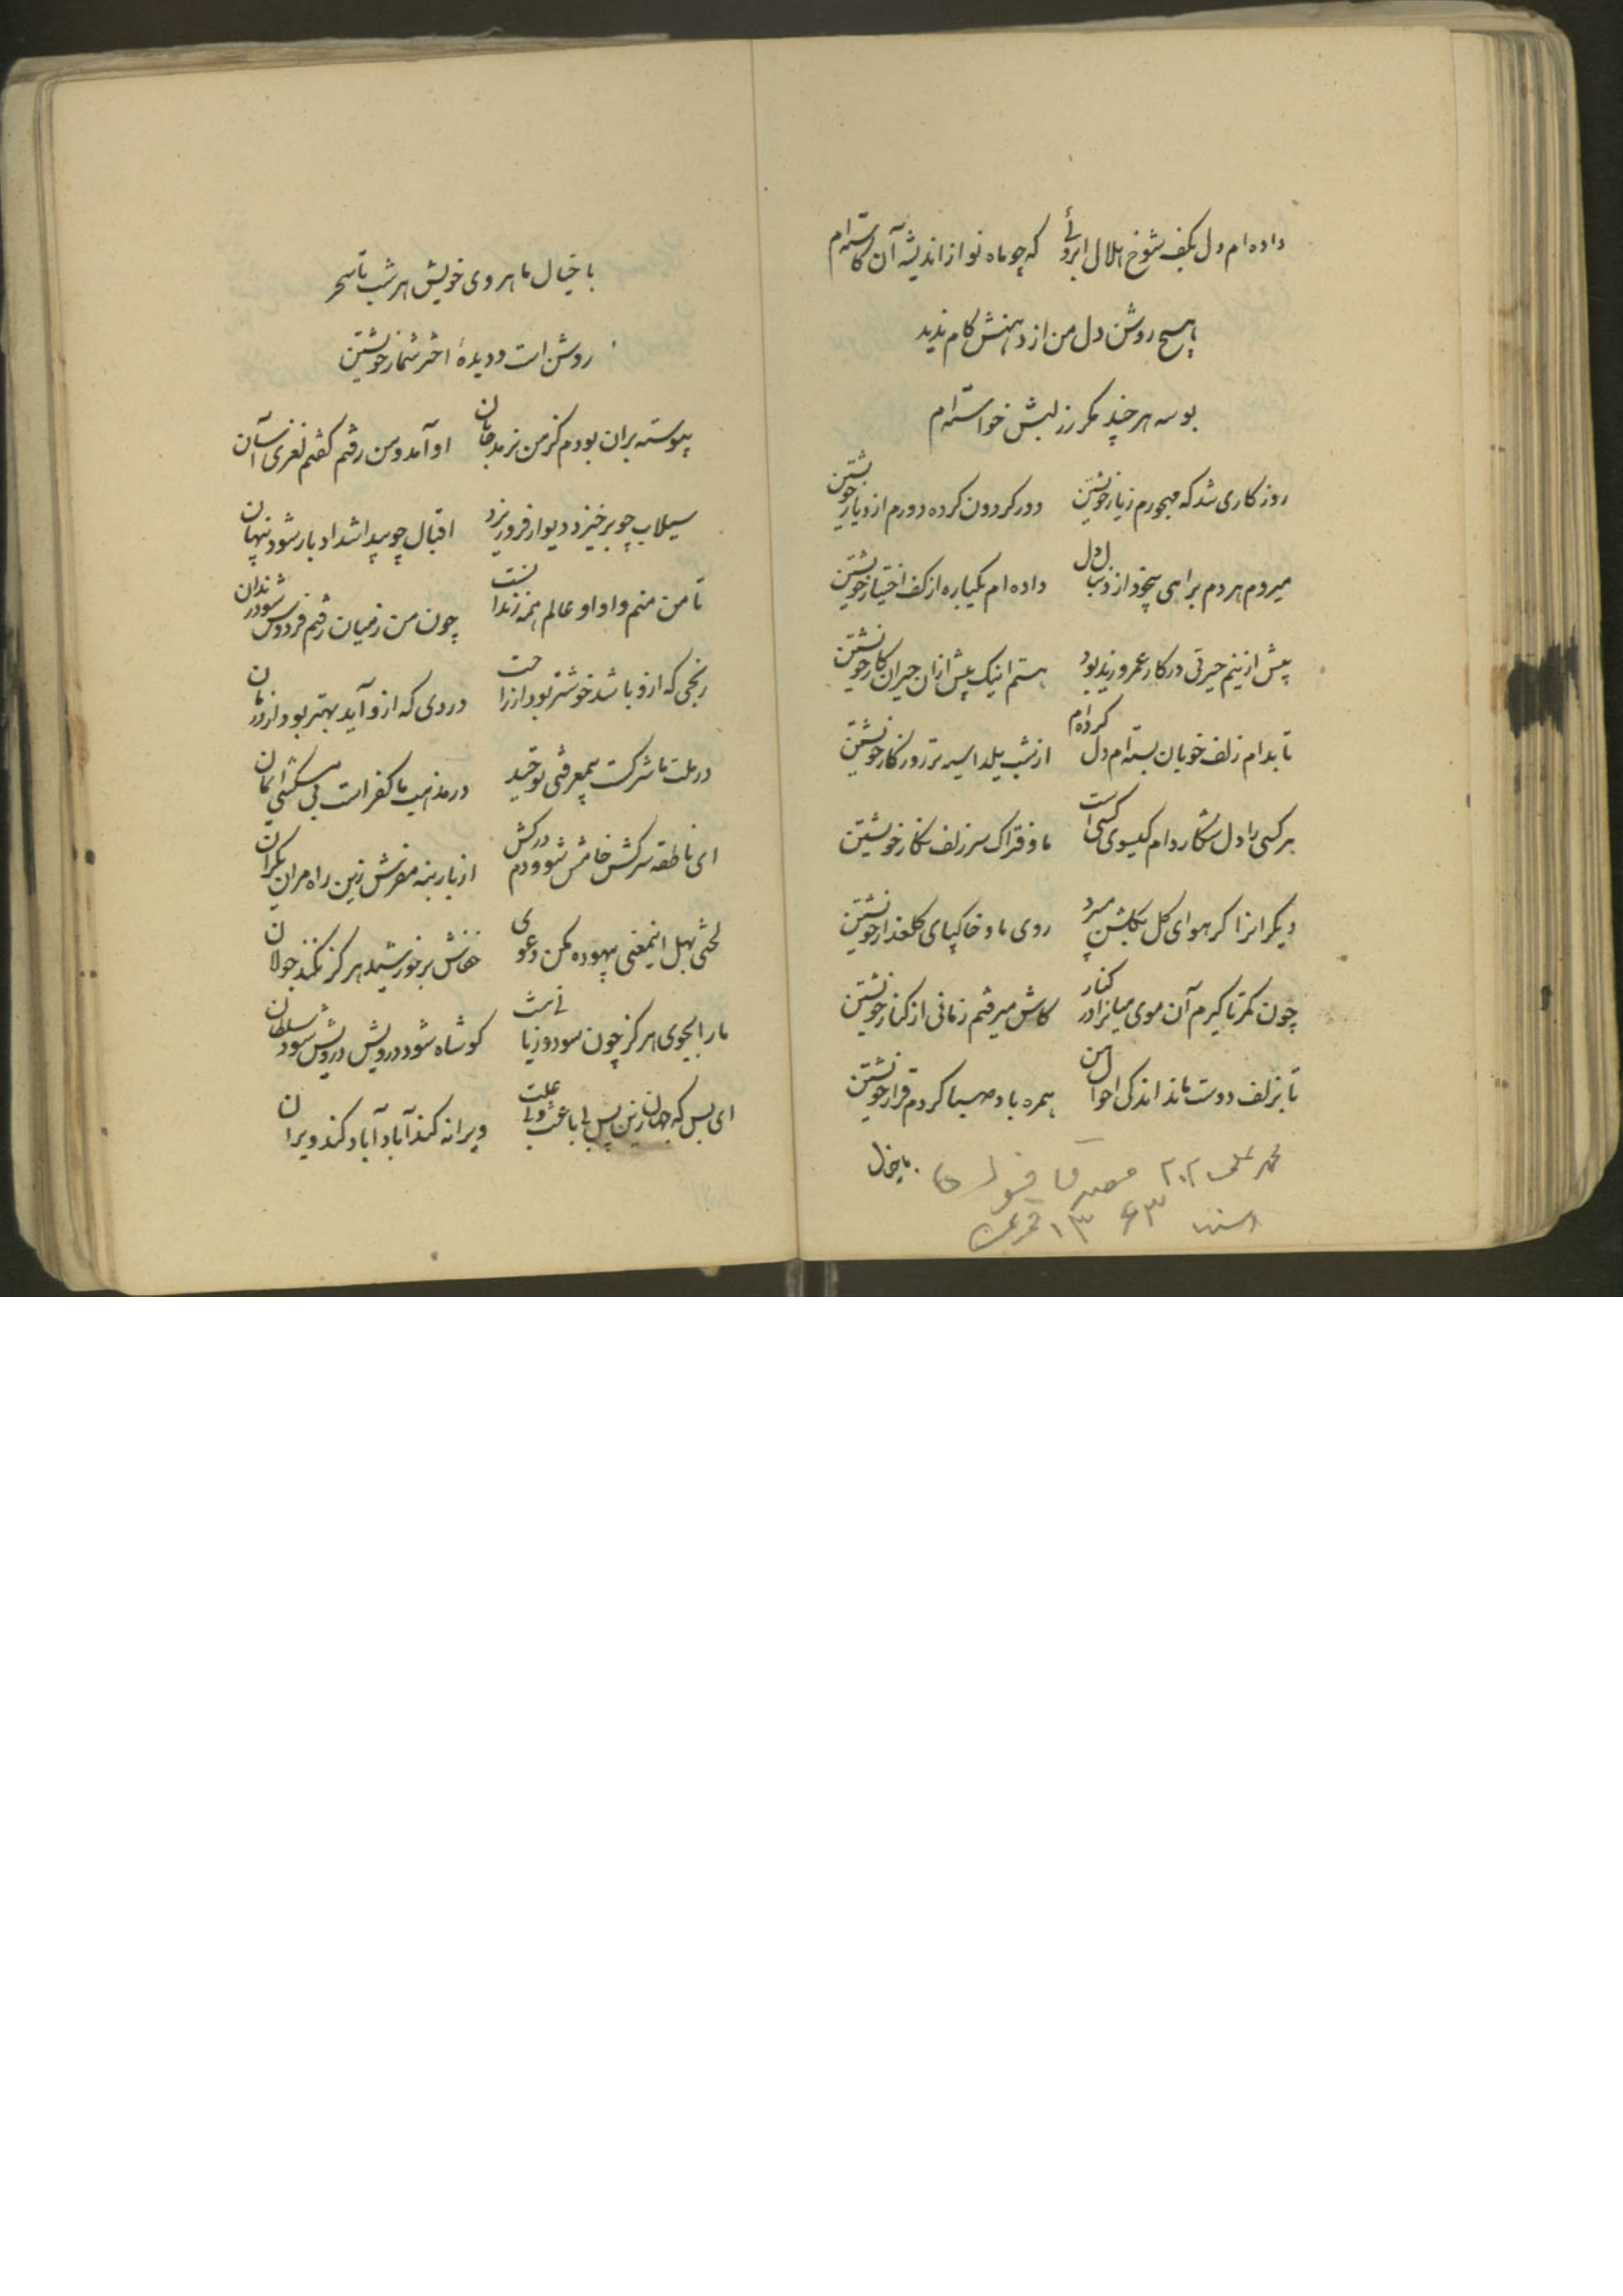 داده‌ام دل بکف شوخ هلال ابروئے که چو ماه نو از اندیشه آن کاسته‌ام
هیچ روشن دل من از دهنش کام ندید
بوسه هر چند مکرر ز لبش خواسته‌ام
روزگاری شد که مهجورم ز یار خویشتن دور کردون کرده دورم از دیار خویشتن
میروم هر دم براهی بیخود از دنبال دل داده‌ام یکباره از کف اختیار خویشتن
پیش ازینم حیرتی در کار عمرو و زید بود هستم اینک بیش از ان حیران کار خویشتن
تا بدام زلف خوبان بسته‌ام دل کرده‌ام از شب یلدا سیه تر روزکار خویشتن
هر کسی را دل شکار دام کیسوی کسی است ما و فتراک سر زلف نکار خویشتن
دیکرانرا کر هوای کل بکلشن میبرد روی ما و خاکپای کلعذار خویشتن
چون کمر تا کیرم آن موی میانرا در کنار کاش میرفتم زمانی از کنار خویشتن
تا بزلف دوست ماند اندکی احوال من همره باد صبا کردم قرار خویشتن
محمد علی
۱۳۶۳
با خیال
با خیال ماهروی خویش هر شب تا سحر
روشن است و دیدهٔ اختر شمار خویشتن
پیوسته بران بودم کز من نرمد جانان او آمد و من رفتم کفتم نغزی آسان
سیلاب چو برخیزد دیوار فرو ریزد اقبال چو پیدا شد ادبار شود پنهان
تا من منم و او او عالم همه زندانست چون من ز میان رفتم فردوس شود زندان
رنجی که ازو باشد خوشتر بود از راحت دردی که ازو آید بهتر بود از درمان
در ملت ما شرکت بیمعرفتی توحید در مذهب ما کفر است بی مسکنتی ایمان
ای ناطقه سرکش خامش شو و دم درکش از بار بنه مفرش زین راه مران یکران
لختی بهل اینمعنی بیهوده مکن دعوی خفاش بر خورشید هرکز نکند جولان
ما را بجوی هرکز چون سود و زیانے نیست کو شاه شود درویش درویش شود سلطان
ای بس که جهان زین پس بی باعث و بے علت ویرانه کند آباد آباد کند ویران